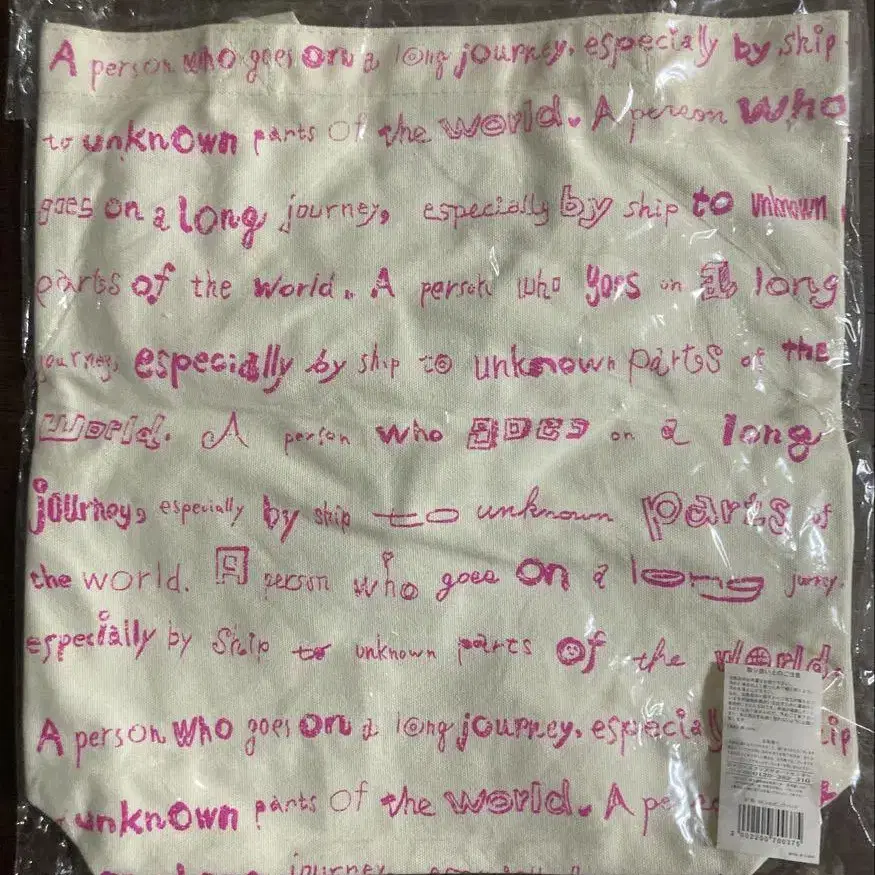 A person who goes on a long journey, especially by ship
to unknown parts of the world. A person who
goes on a long journey, especially by ship to unknown
parts of the world. A person who goes on a long
journey, especially by ship to unknown parts of the
world. A person who goes on a long
journey, especially by ship to unknown parts of
the world. A person who goes on a long journey.
especially by ship to unknown parts of the world.
A person who goes on a long journey, especia
unknown parts of the world. A pe
journey
取り扱い上のご注意
2002200700276